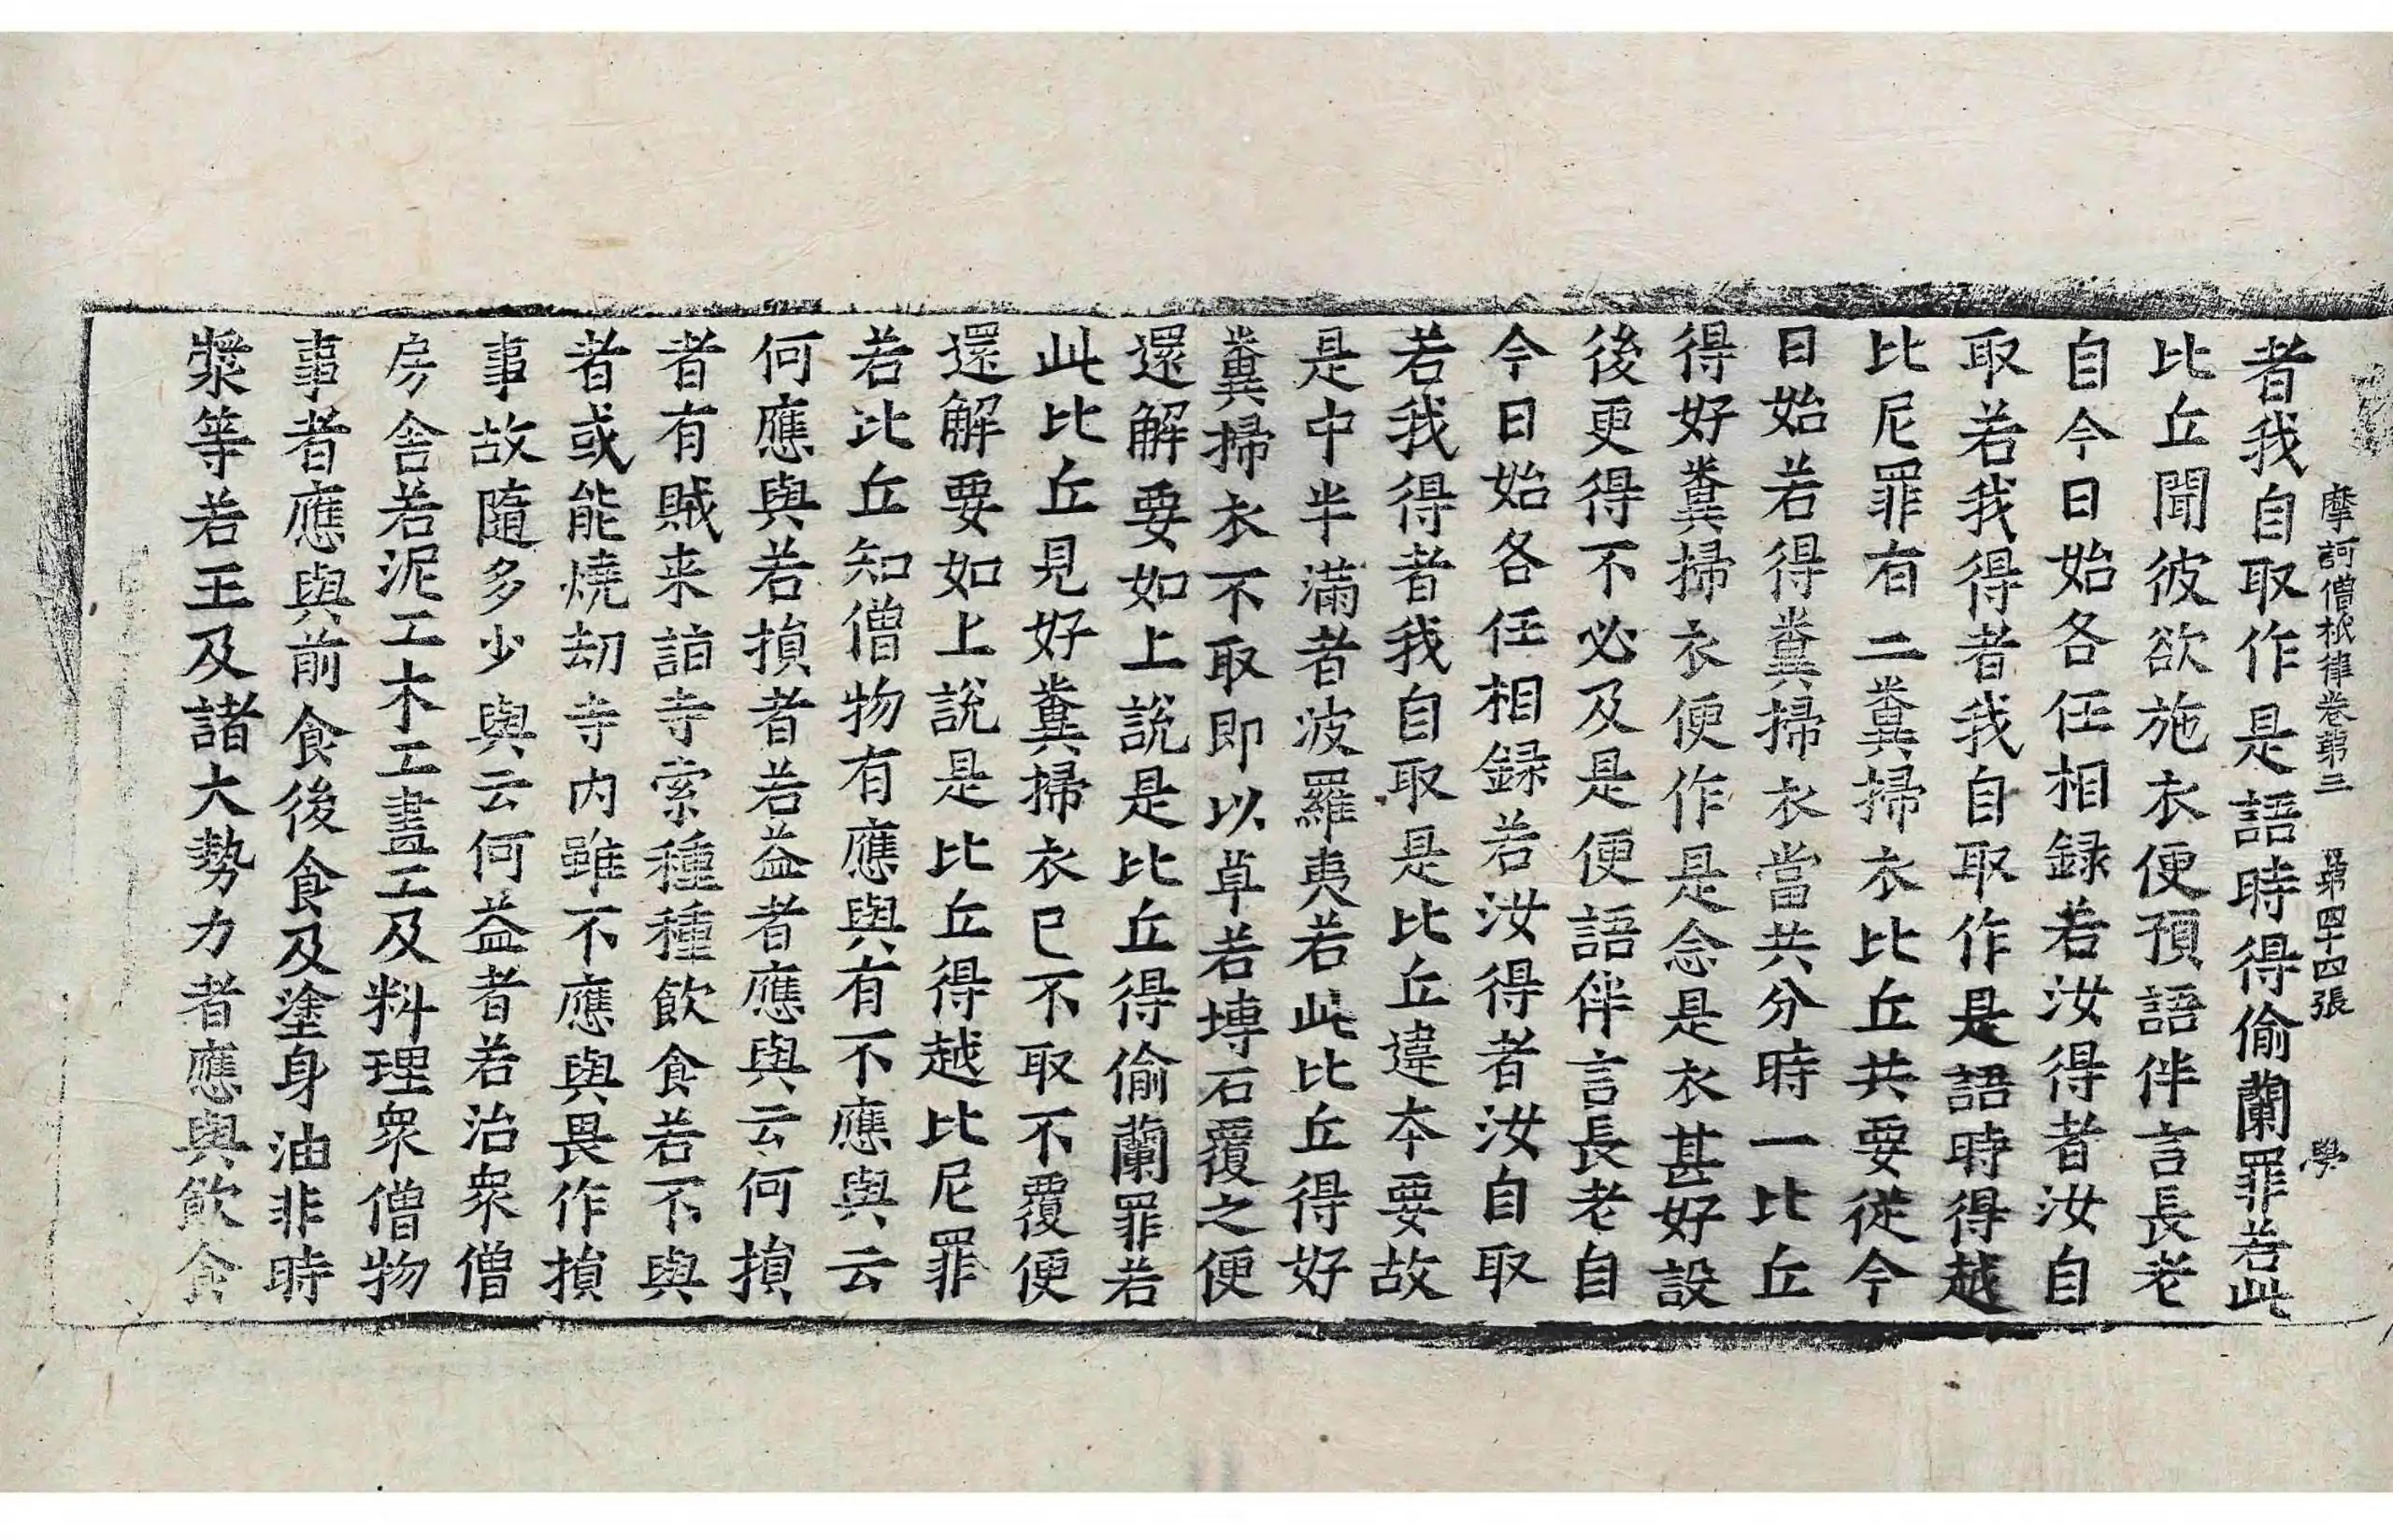 摩訶僧祇律卷第三 第四十四張 學
者我自取作是語時得偷蘭罪若此
比丘聞彼欲施衣便預語伴言長老
自今日始各任相録若汝得者汝自
取若我得者我自取作是語時得越
比尼罪有二糞掃衣比丘共要從今
日始若得糞掃衣當共分時一比丘
得好糞掃衣便作是念是衣甚好設
後更得不必及是便語伴言長老自
今日始各任相録若汝得者汝自取
若我得者我自取是比丘違本要故
是中半滿者波羅夷若此比丘得好
糞掃衣不取即以草若塼石覆之便
還解要如上說是比丘得偷蘭罪若
此比丘見好糞掃衣已不取不覆便
還解要如上說是比丘得越比尼罪
若比丘知僧物有應與有不應與云
何應與若損者若益者應與云何損
者有賊来詣寺索種種飲食若不與
者或能燒劫寺内雖不應與畏作損
事故隨多少與云何益者若治衆僧
房舍若泥工木工畫工及料理衆僧物
事者應與前食後食及塗身油非時
漿等若王及諸大勢力者應與飲食